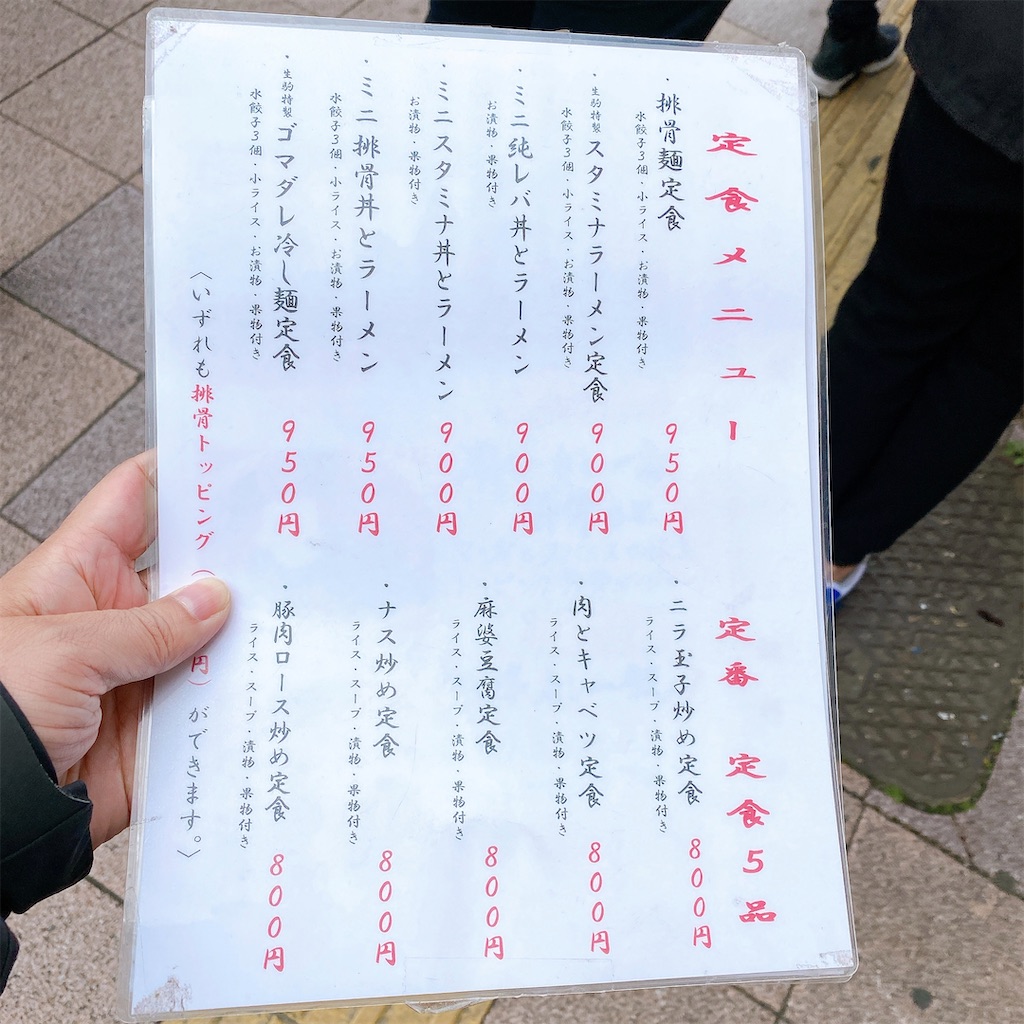 定食メニュー
・排骨麺定食 950円
水餃子3個・小ライス・お漬物・果物付き
・生駒特製スタミナラーメン定食 900円
水餃子3個・小ライス・お漬物・果物付き
・ミニ純レバ丼とラーメン 900円
お漬物・果物付き
・ミニスタミナ丼とラーメン 900円
お漬物・果物付き
・ミニ排骨丼とラーメン 950円
水餃子3個・小ライス・お漬物・果物付き
・生駒特製ゴマダレ冷し麺定食 950円
水餃子3個・小ライス・お漬物・果物付き
定番 定食5品
・ニラ玉子炒め定食 800円
ライス・スープ・漬物・果物付き
・肉とキャベツ定食 800円
ライス・スープ・漬物・果物付き
・麻婆豆腐定食 800円
ライス・スープ・漬物・果物付き
・ナス炒め定食 800円
ライス・スープ・漬物・果物付き
・豚肉ロース炒め定食 800円
ライス・スープ・漬物・果物付き
〈いずれも排骨トッピング（円）ができます。〉